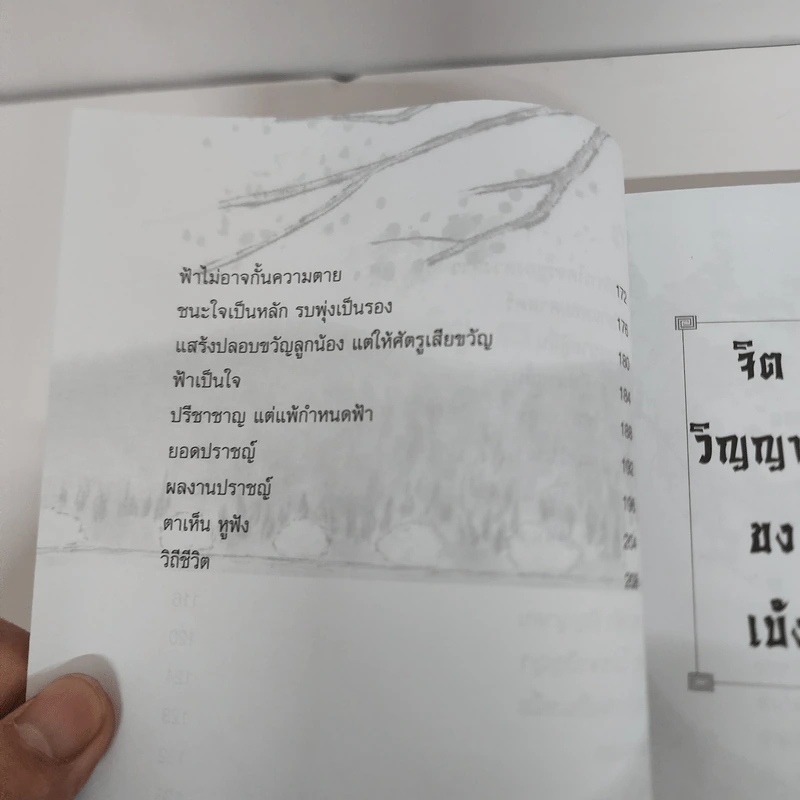 ฟ้าไม่อาจกั้นความตาย 172
ชนะใจเป็นหลัก รบพุ่งเป็นรอง 176
แสร้งปลอบขวัญลูกน้อง แต่ให้ศัตรูเสียขวัญ 180
ฟ้าเป็นใจ 184
ปรีชาชาญ แต่แพ้กำหนดฟ้า 188
ยอดปราชญ์ 192
ผลงานปราชญ์ 196
ตาเห็น หูฟัง 204
วิถีชีวิต 208
จิต
วิญญา
ของ
เบ้ง